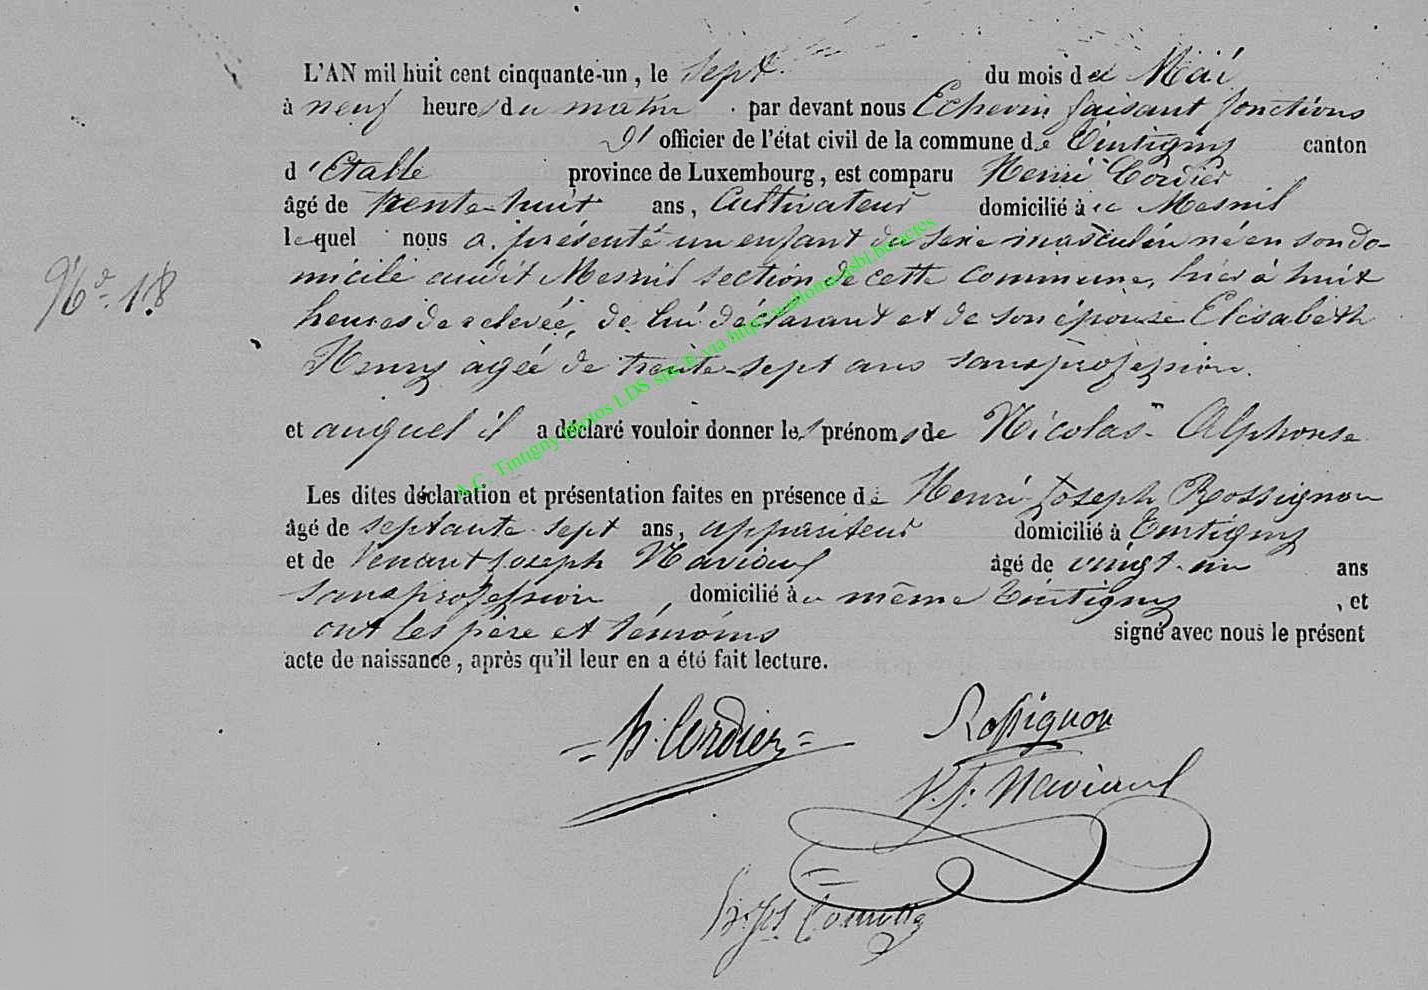 L'AN mil huit cent cinquante-un, le Sept du mois de Mai
à neuf heures du matin par devant nous Echevin faisant fonctions
d' officier de l'état civil de la commune de Tintigny canton
d'Etalle province de Luxembourg, est comparu Henri Cordier
âgé de trente-huit ans, Cultivateur domicilié à Mesnil
lequel nous a présenté un enfant du sexe masculin né en son do-
micile audit Mesnil section de cette commune, hier à huit
heures de relevée, de lui déclarant et de son épouse Elisabeth
Henry âgée de trente-sept ans sans profession.
N° 18.
et auquel il a déclaré vouloir donner les prénoms de Nicolas Alphonse
Les dites déclaration et présentation faites en présence de Henri Joseph Rossignon
âgé de septante-sept ans, appariteur domicilié à Tintigny
et de Venant Joseph Naviaux âgé de vingt-un ans
sans profession, domicilié à même Tintigny, et
ont les père et témoins signé avec nous le présent
acte de naissance, après qu'il leur en a été fait lecture.
= h. Cordier =
Rossignon
V. J. Naviaux
A.C. Tintigny photos LDS